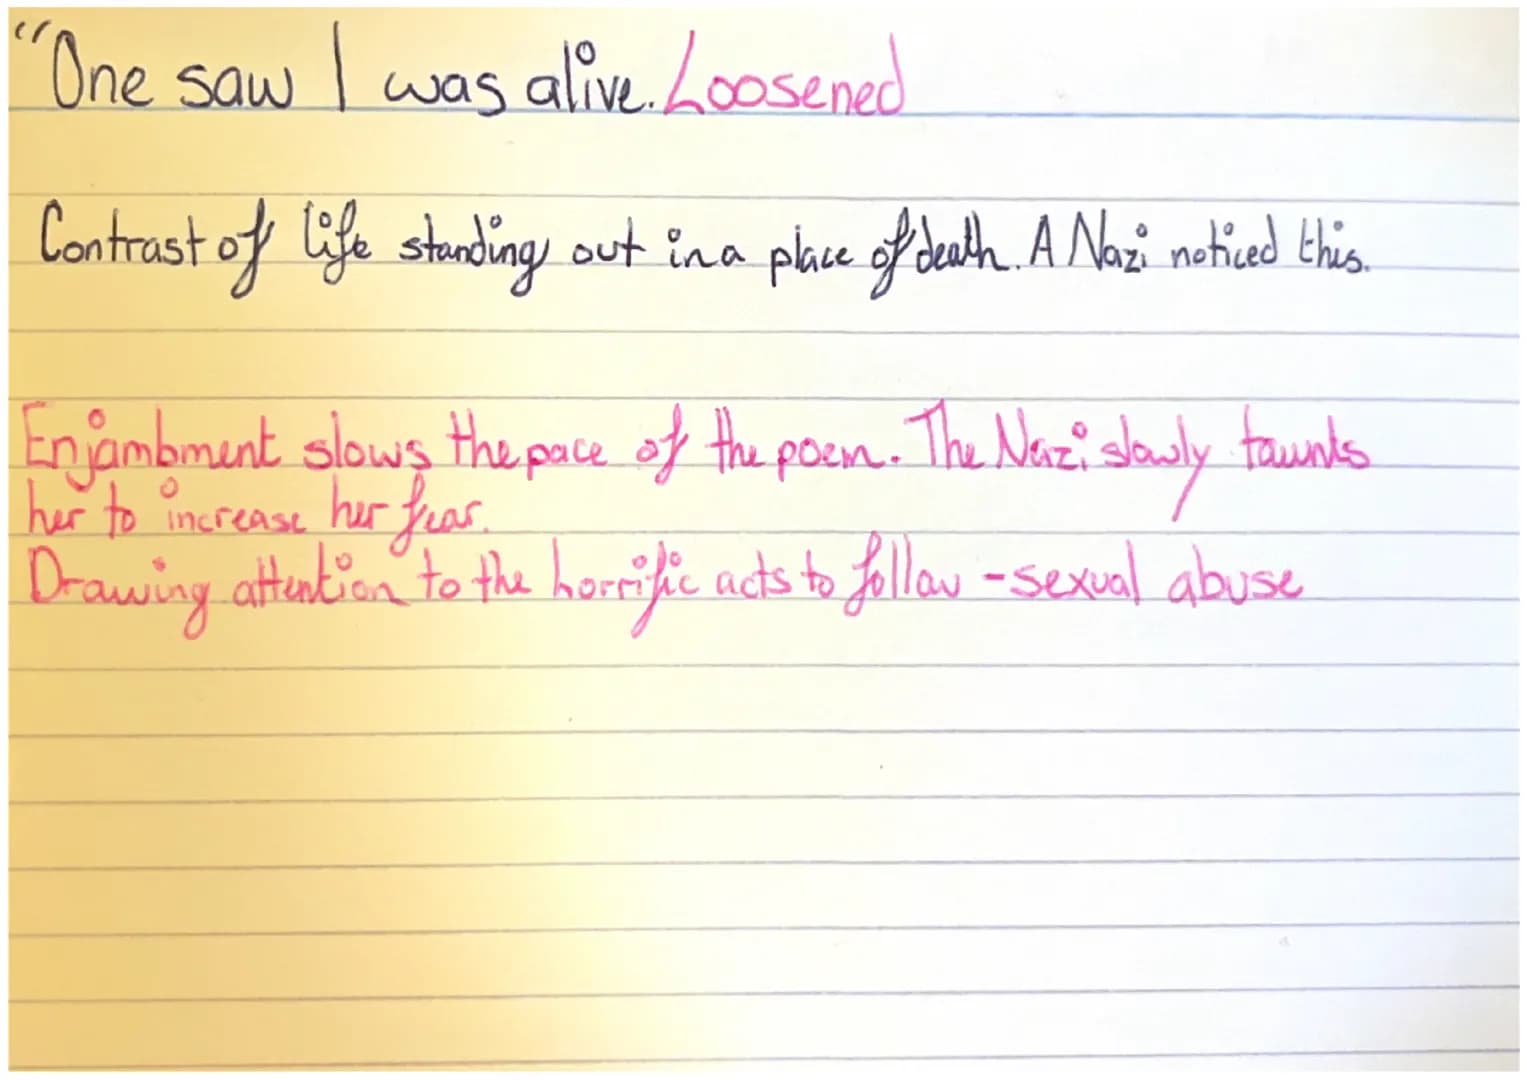 "One saw I was alive. Loosened
Contrast of life standing out in a place of death. A Nazi noticed this.
Enjambment slows the pace of the poem. The Nazi slowly taunts
her to increase her fear.
Drawing attention to the horrific acts to follow - sexual abuse